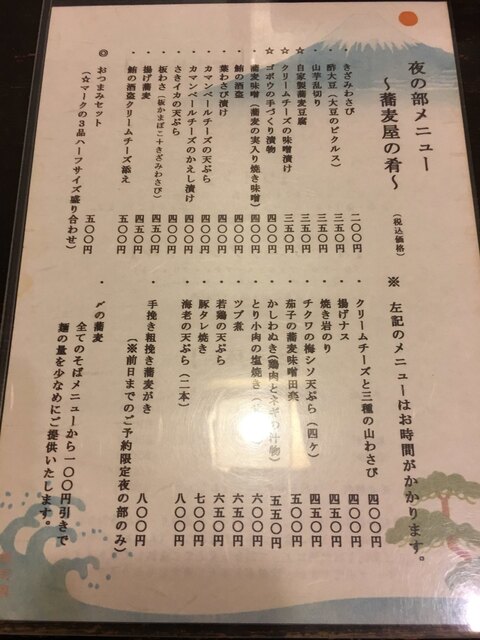 夜の部メニュー
～蕎麦屋の肴～
(税込価格)
・きざみわさび 二〇〇円
・酢大豆(大豆のピクルス) 三五〇円
・山芋乱切り 三五〇円
・自家製蕎麦豆腐 三五〇円
☆クリームチーズの味噌漬け 三五〇円
☆ゴボウの手づくり漬物 四〇〇円
☆蕎麦味噌(蕎麦の実入り焼き味噌) 四〇〇円
・鮪の酒盗 四〇〇円
・葉わさび漬け 四〇〇円
・カマンベールチーズの天ぷら 四〇〇円
・カマンベールチーズのかえし漬け 四〇〇円
・さきイカの天ぷら 四〇〇円
・板わさ(板かまぼこ+きざみわさび) 四五〇円
・揚げ蕎麦 四五〇円
・鮪の酒盗クリームチーズ添え 五〇〇円
◎おつまみセット 五〇〇円
(☆マークの3品ハーフサイズ盛り合わせ)
※ 左記のメニューはお時間がかかります。
・クリームチーズと三種の山わさび 四〇〇円
・揚げナス 四〇〇円
・焼き岩のり 四五〇円
・チクワの梅シソ天ぷら(四ケ) 四五〇円
・茄子の蕎麦味噌田楽 五〇〇円
・かしわぬき(鶏肉とネギの汁物) 五五〇円
・とり小肉の塩焼き 六〇〇円
・ツブ煮 六五〇円
・若鶏の天ぷら 六五〇円
・豚タレ焼き 七〇〇円
・海老の天ぷら(二本) 八〇〇円
・手挽き粗挽き蕎麦がき 八〇〇円
(※前日までのご予約限定夜の部のみ)
・〆の蕎麦
全てのそばメニューから一〇〇円引きで
麺の量を少なめにご提供いたします。